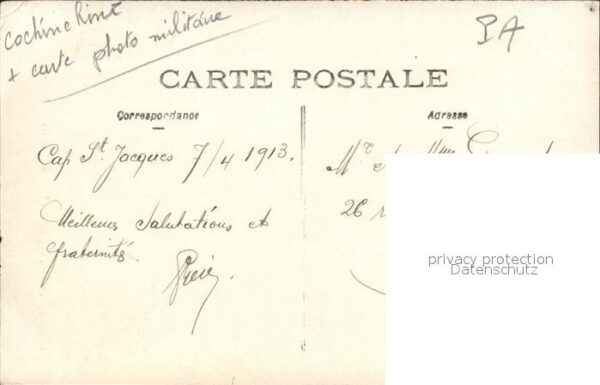 Cochinchine
+ carte photo militaire
3A
CARTE POSTALE
Correspondance
Adresse
Cap St. Jacques 7/4 1913.
Mr et Mme
26
Meilleures Salutations et
fraternité
privacy protection
Datenschutz